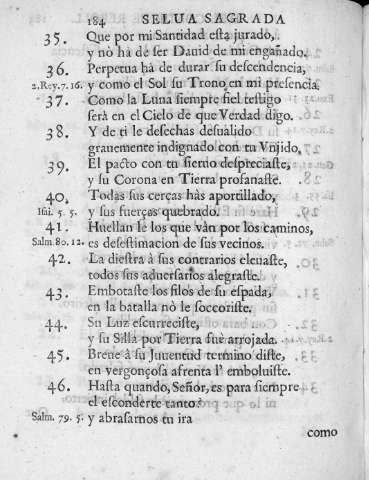 184 SELUA SAGRADA
35. Que por mi Santidad està jurado,
y nò hà de ser Dauid de mi engañado.
36. Perpetua hà de durar su descendencia,
2. Rey. 7. 16. y como el Sol su Trono en mi presencia.
37. Como la Luna siempre fiel testigo
serà en el Cielo de que Verdad digo.
38. Y de ti le desechas desualido
grauemente indignado con tu Vnjido.
39. El pacto con tu sieruo despreciaste,
y su Corona en Tierra profanaste.
40. Todas sus cerças hàs aportillado,
Isai. 5. 5. y sus fuerças quebrado.
41. Huellan le los que vàn por los caminos,
Salm. 80. 12. es desestimacion de sus vecinos.
42. La diestra à sus contrarios eleuaste,
todos sus aduersarios alegraste.
43. Embotaste los filos de su espada,
en la batalla nò le soccoriste.
44. Su Luz escurreciste,
y su Silla por Tierra fuè arrojada.
45. Breue à su Juuentud termino diste,
en vergonçosa afrenta l' emboluiste.
46. Hasta quando, Señor, es para siempre
el esconderte tanto?
Salm. 79. 5. y abrasarnos tu ira
como